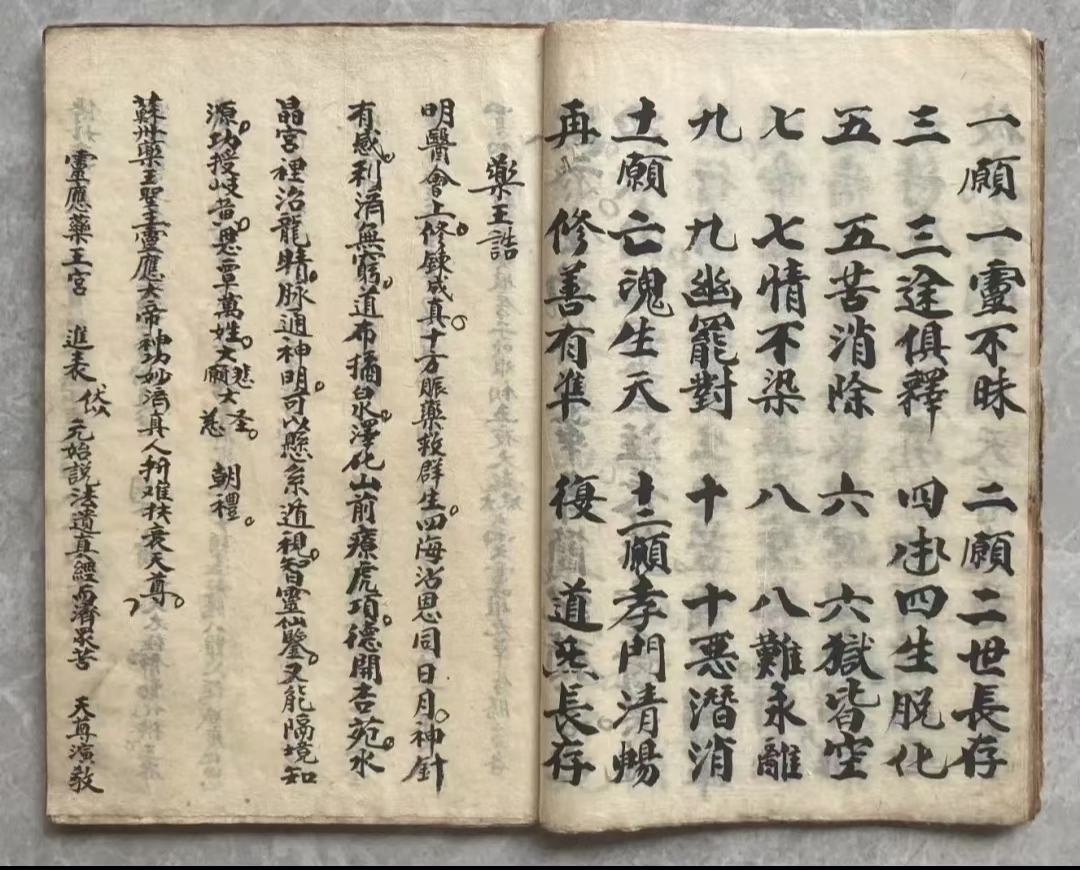 一願一靈不昧 二願二世長存
三 三途俱釋 四 四生脱化
五 五苦消除 六 六獄皆空
七 七情不染 八 八難永離
九 九幽罷對 十 十惡潛消
十一願亡魂生天 十二願孝門清暢
再 修善有準 復 道炁長存
藥王誥
明醫會上。修鍊成真。十方賑藥救群生。四海沾恩同日月。神針
有感。利濟無窮。道布橘白水。澤化山前療虎項。德開杏苑。水
晶宮裡治龍睛。脉通神明。可以懸糸遁視。智靈仙鑒。又能隔境知
源。功授岐黄。恩覃萬姓。大悲大願大圣大慈。朝禮。
蘇州藥王聖主靈應大帝神功妙濟真人扸难扶衰天尊。
靈應藥王宮 進表 伏以 元始説法遺真經而濟眾苦 天尊演教